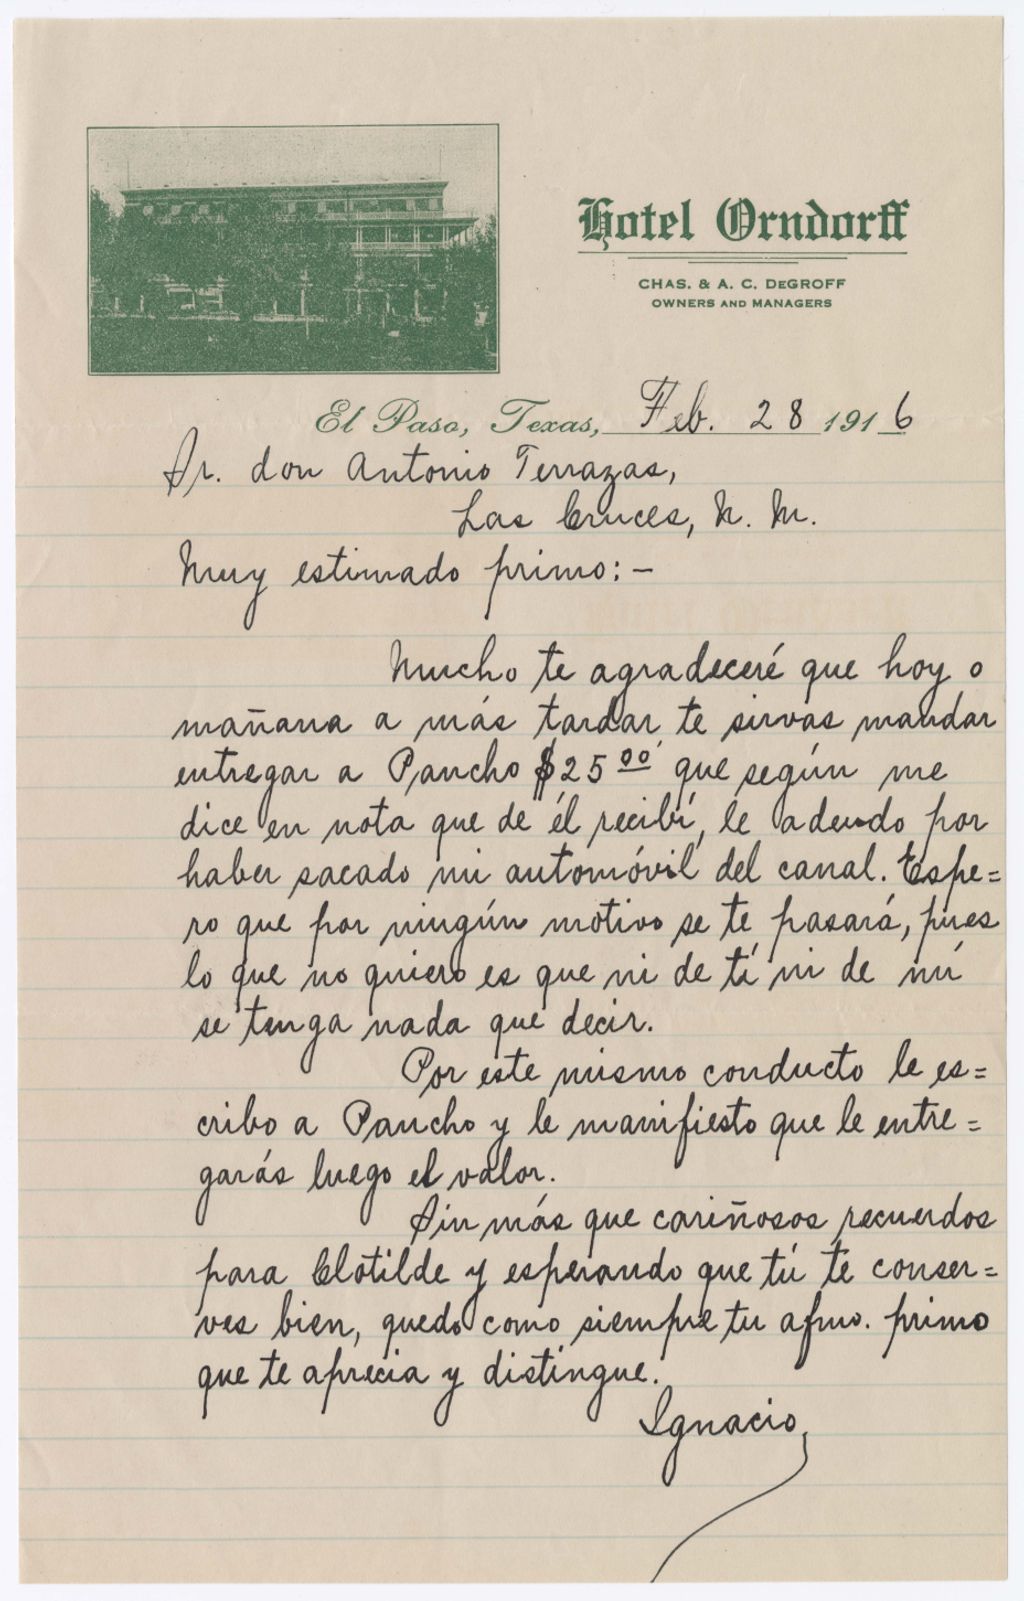 Hotel Orndorff
CHAS. & A. C. DEGROFF
OWNERS AND MANAGERS
El Paso, Texas, Feb. 28 1916
Sr. don Antonio Terrazas,
Las Cruces, N. M.
Muy estimado primo:-
Mucho te agradeceré que hoy o
mañana a más tardar te sirvas mandar
entregar a Pancho $25 00 que según me
dice en nota que de él recibí, le adeudo por
haber sacado mi automóvil del canal. Espe=
ro que por ningún motivo se te pasará, pues
lo que no quiero es que ni de tí ni de mí
se tenga nada que decir.
Por este mismo conducto le es=
cribo a Pancho y le manifiesto que le entre=
garás luego el valor.
Sin más que cariñosos recuerdos
para Clotilde y esperando que tú te conser=
ves bien, quedo como siempre tu afmo. primo
que te aprecia y distingue.
Ignacio